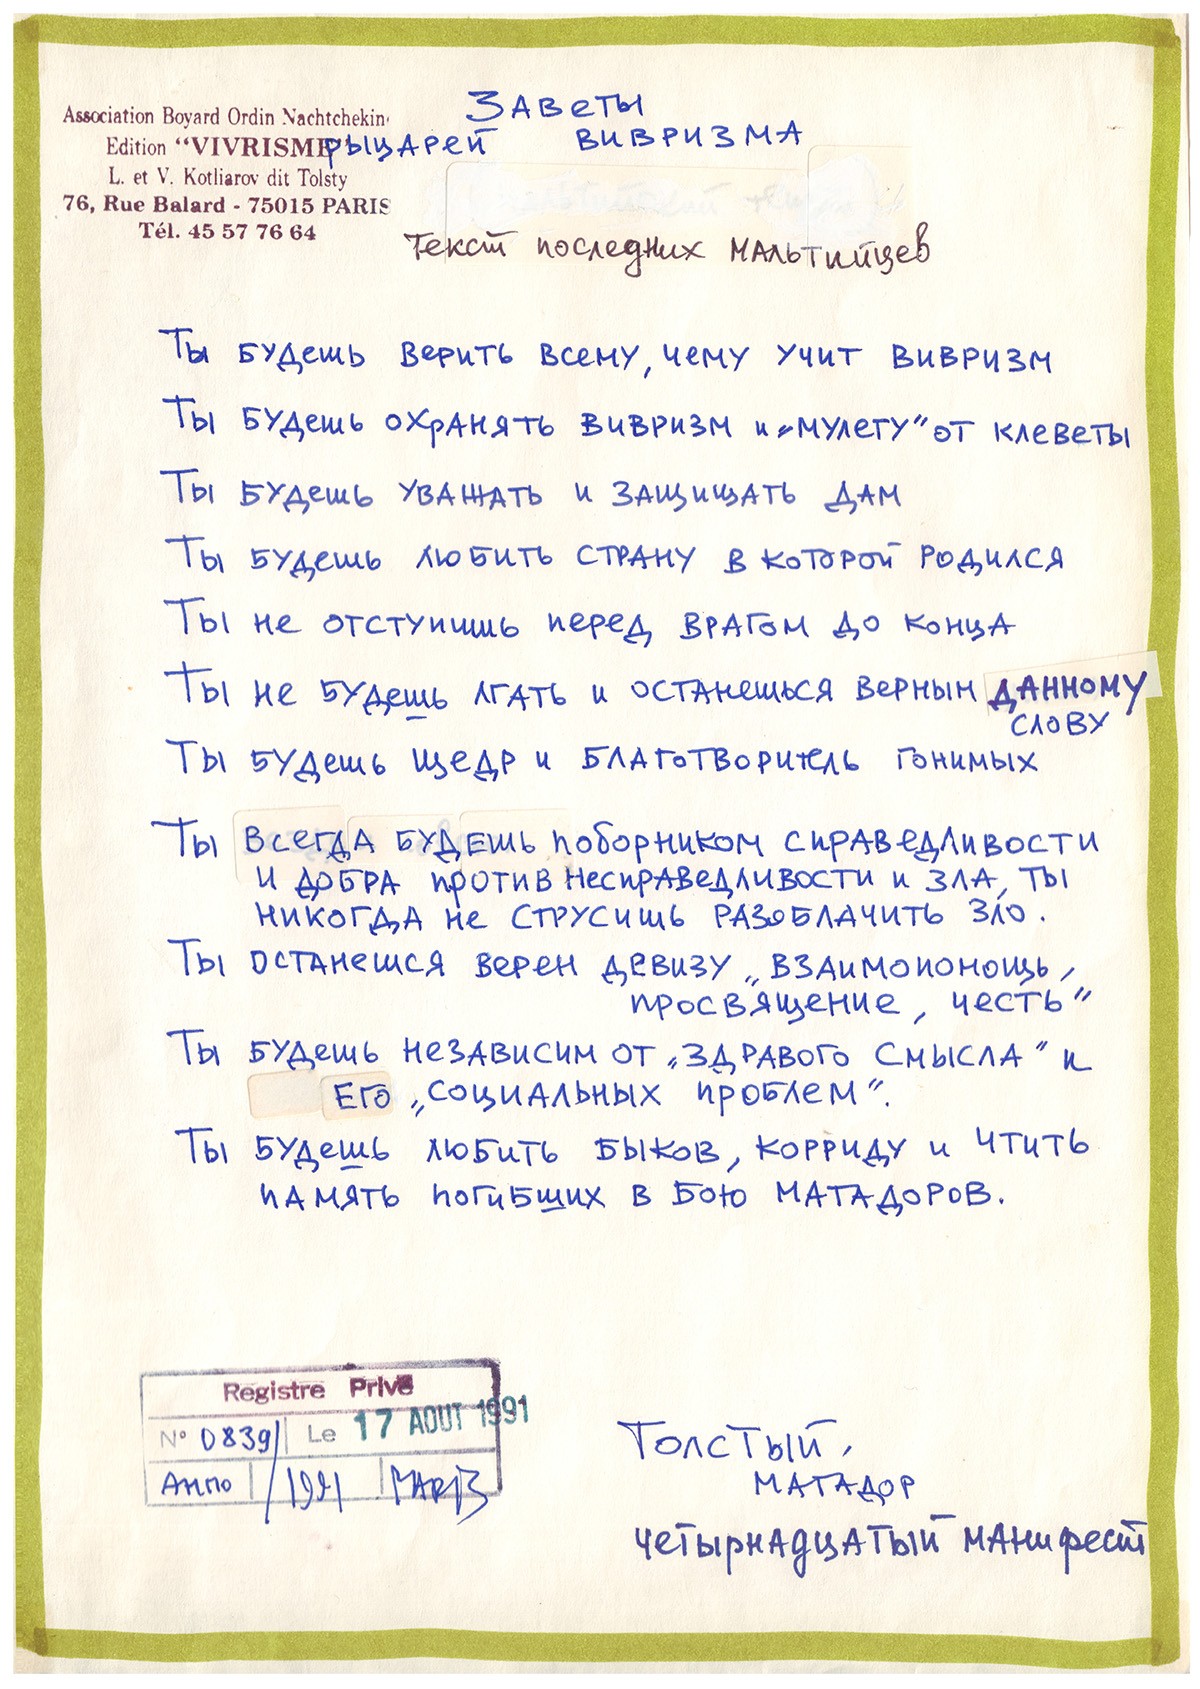 Association Boyard Ordin Nachtchekin
Edition "VIVRISME"
L. et V. Kotliarov dit Tolsty
76, Rue Balard - 75015 PARIS
Tél. 45 57 76 64
Заветы
рыцарей вивризма
Текст последних мальтийцев
Ты будешь верить всему, чему учит вивризм
Ты будешь охранять вивризм и „Мулету" от клеветы
Ты будешь уважать и защищать дам
Ты будешь любить страну в которой родился
Ты не отступишь перед врагом до конца
Ты не будешь лгать и останешься верным данному
слову
Ты будешь щедр и благотворитель гонимых
Ты всегда будешь поборником справедливости
и добра против несправедливости и зла, ты
никогда не струсишь разоблачить зло.
Ты останешся верен девизу „взаимопомощь,
просвящение, честь"
Ты будешь независим от „здравого смысла" и
его „социальных проблем".
Ты будешь любить быков, корриду и чтить
память погибших в бою матадоров.
Registre Privé
N° 0839 Le 17 AOUT 1991
Анпо 1991
Толстый,
матадор
четырнадцатый манифест